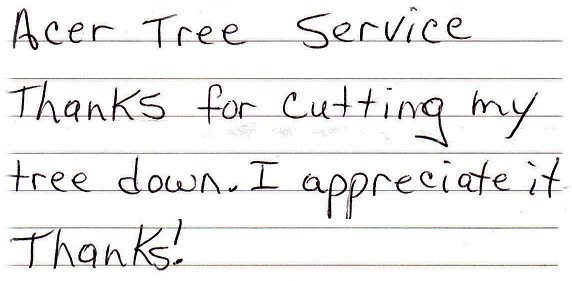 Acer Tree Service
Thanks for cutting my
tree down. I appreciate it
Thanks!